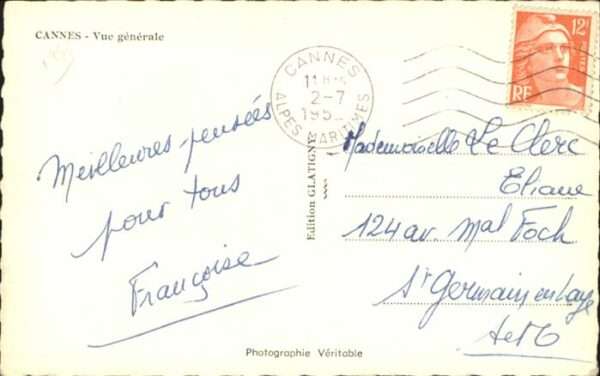 CANNES - Vue générale
Meilleures pensées
pour tous
Françoise
Edition GLATIGNY
CANNES
2-7
195
ALPES MARITIMES
12F
POSTES
RF
Mademoiselle Le Clerc
Eliane
124 av. Mal Foch
St Germain en Laye
S et O
Photographie Véritable